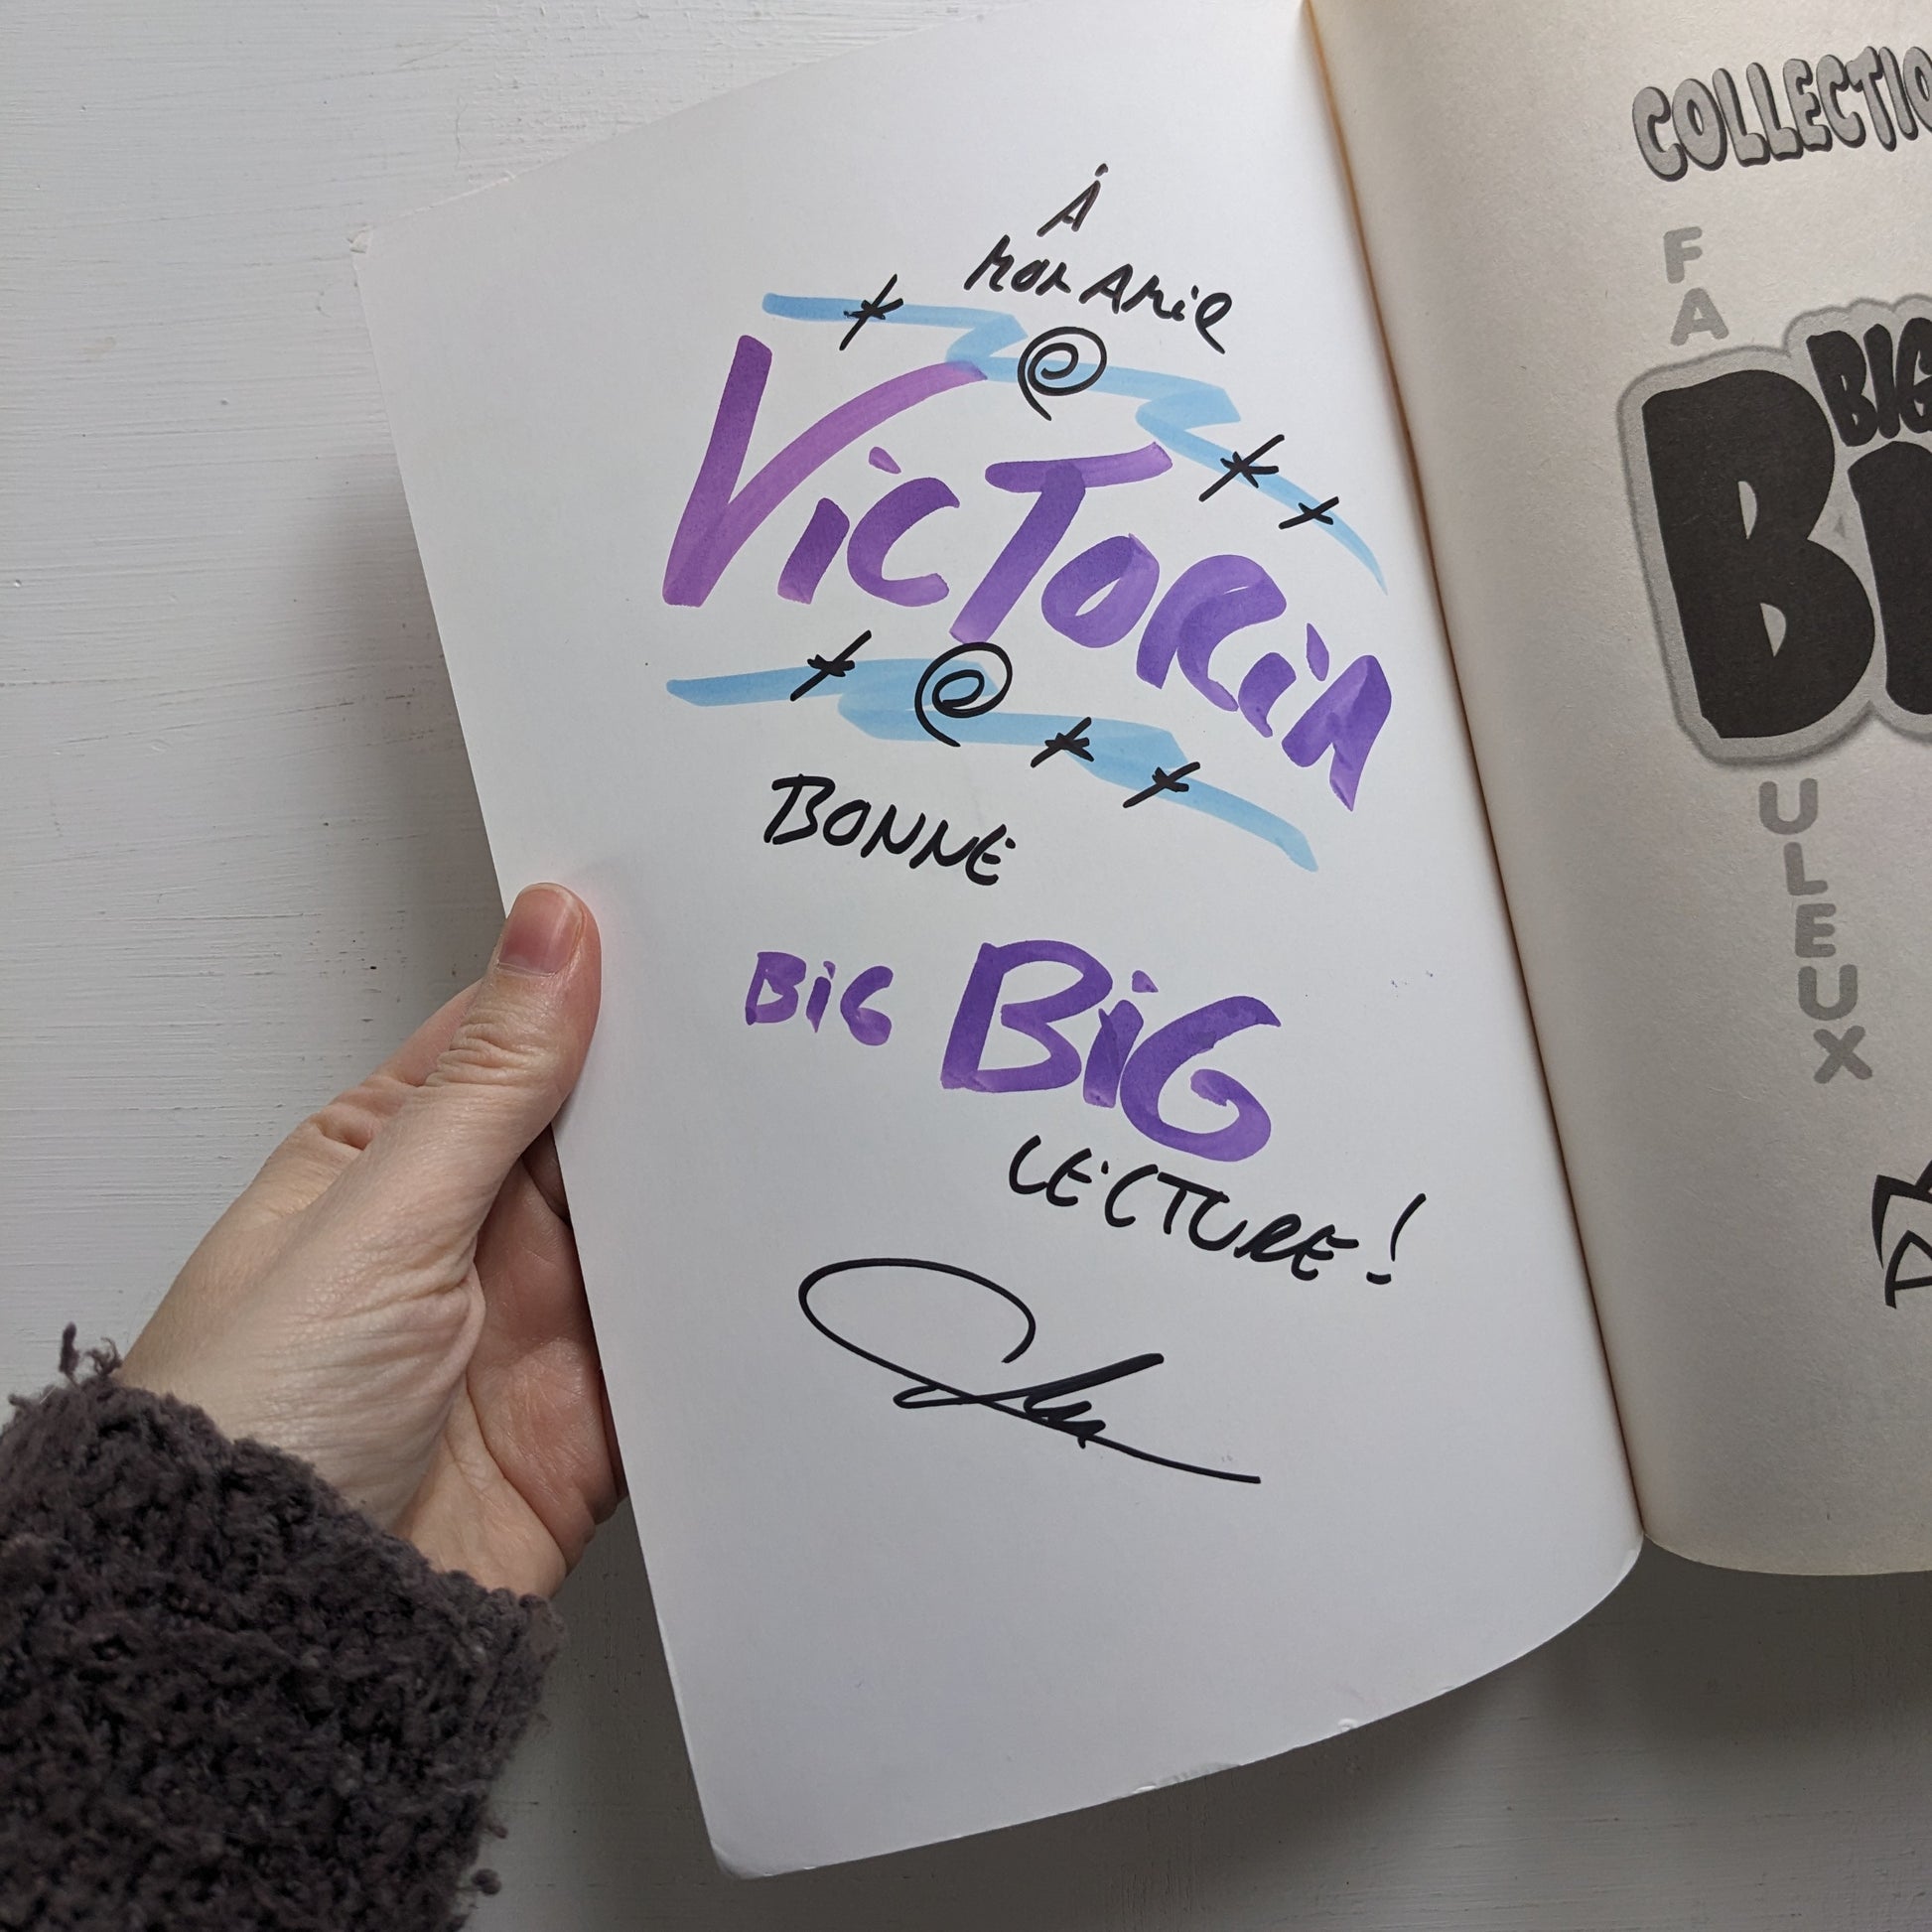 À
MON AMiE
VICTORiA
BONNE
BiG BiG
LECTURE !
COLLECTIO
F
A
BIG
B
U
L
E
U
X